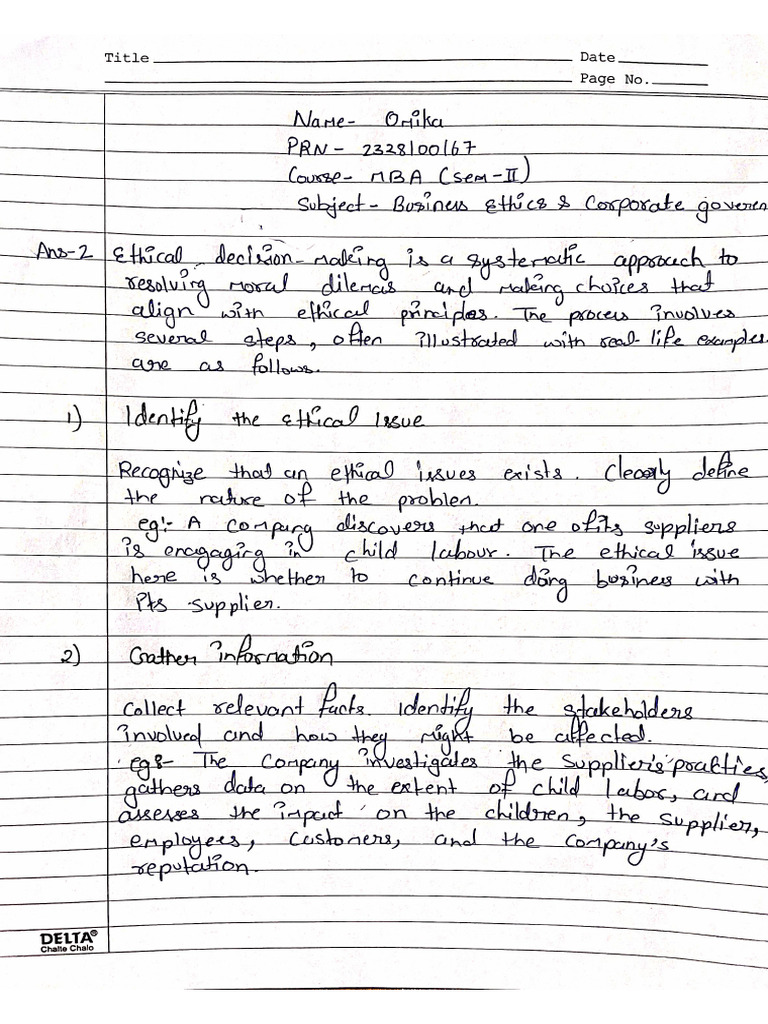 Title
Date
Page No.
Name- Omika
PRN- 2328100167
Course- MBA (Sem-II)
Subject- Business Ethics & Corporate goveren
Ans-2 Ethical decision-making is a systematic approach to
resolving moral dilemas and making choices that
align with ethical principles. The process involves
several steps, often illustrated with real-life examples.
are as follows.
1) Identify the ethical issue
Recognize that an ethical issues exists. Clearly define
the nature of the problem.
eg:- A company discovers that one of its suppliers
is enagaging in child labour. The ethical issue
here is whether to continue doing business with
its supplier.
2) Gather information
Collect relevant facts. Identify the stakeholders
involved and how they might be affected.
eg:- The Company investigates the supplier's practies,
gathers data on the extent of child labor, and
assesses the impact on the children, the supplier,
employees, customers, and the company's
reputation.
DELTA®
Challe Chalo